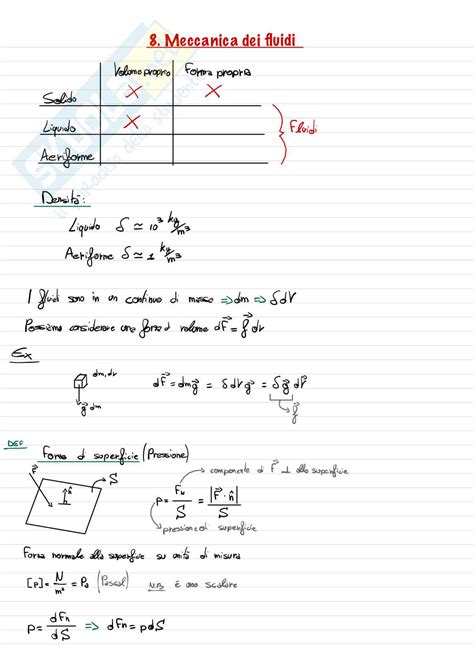 8. Meccanica dei fluidi
Volume proprio Forma propria
Solido X X
Liquido X
Aeriforme
Fluidi
Densità:
Liquido δ ≃ 10³ kg/m³
Aeriforme δ ≃ 1 kg/m³
I fluidi sono in un continuo di masse ⇒ dm ⇒ δdV
Possiamo considerare una forza di volume dF⃗ = f⃗ dv
Ex
dm, dv
g⃗ dm
dF⃗ = dm g⃗ = δ dV g⃗ = δ g⃗ dV
f⃗
DEF Forza di superficie (Pressione)
F⃗ n̂ S
componente di F⃗ ⊥ alla superficie
p = Fn/S = |F⃗ · n̂|/S
pressione di superficie
Forza normale alla superficie su unità di misura
[p] = N/m² = Pa (Pascal) N.B. è uno scalare
p = dFn/dS ⇒ dFn = p dS